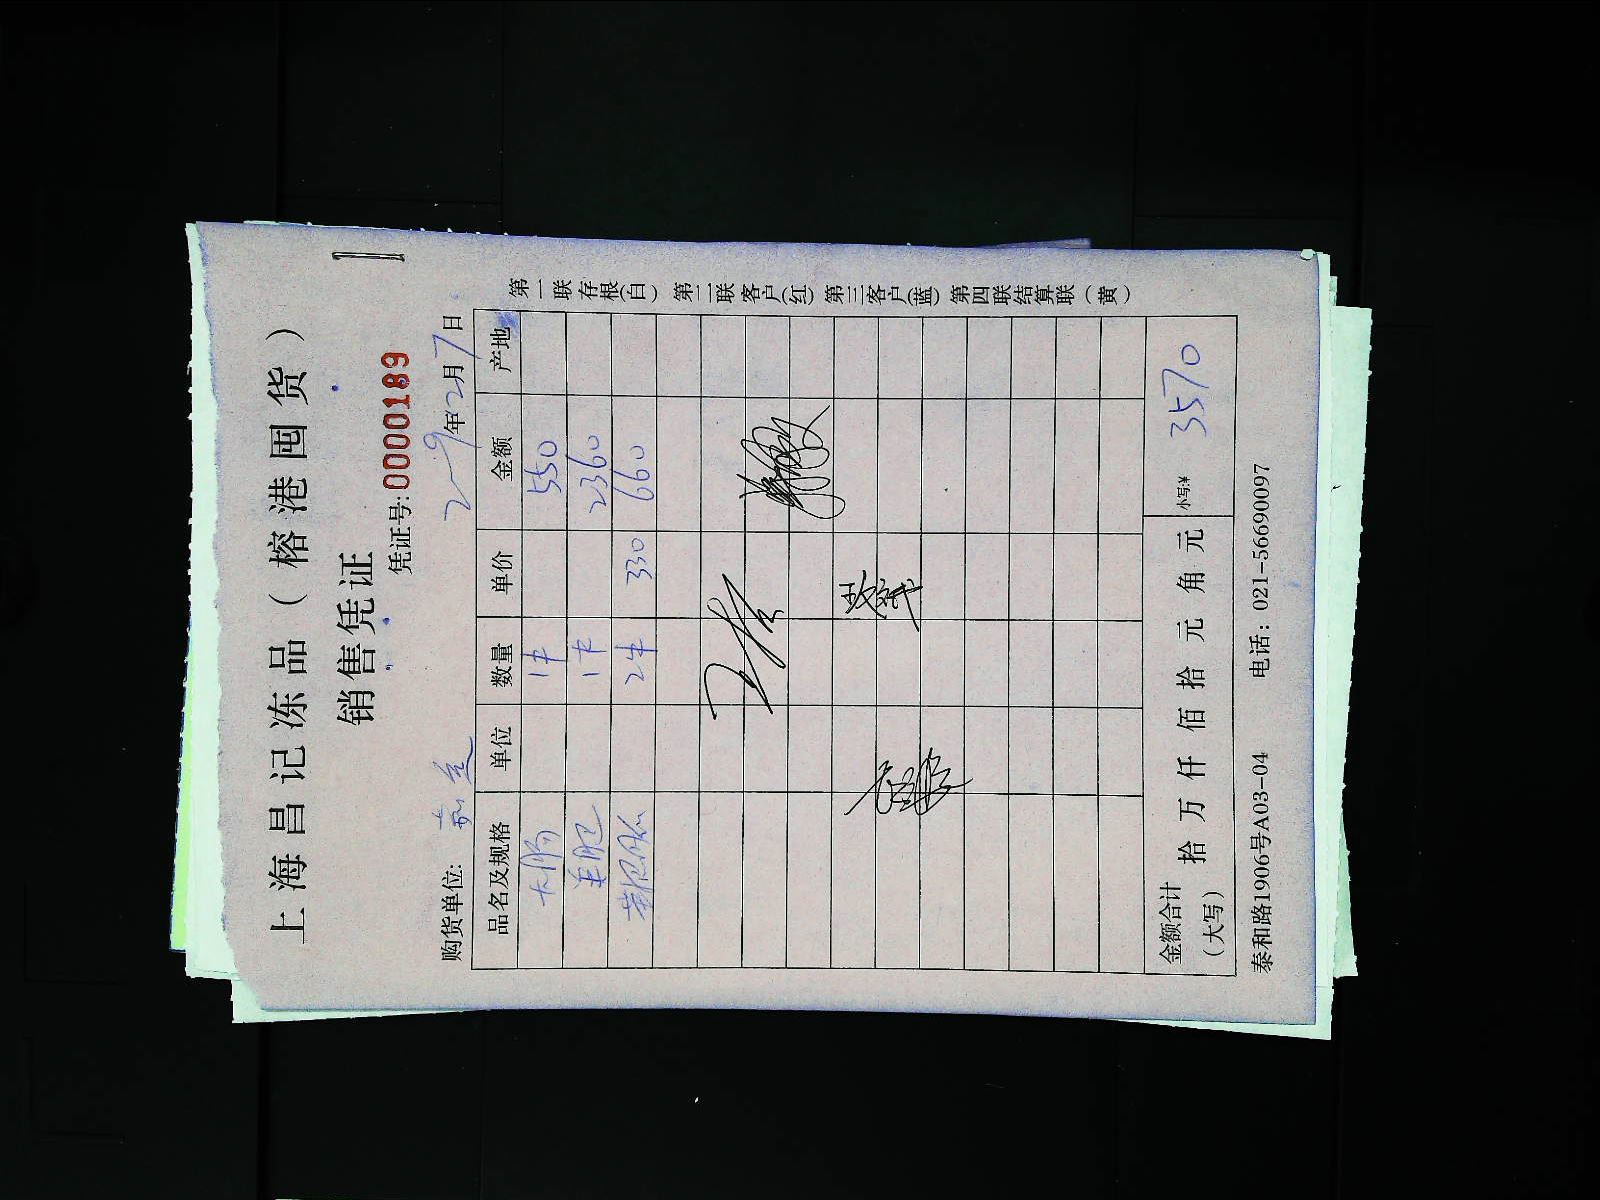 上海昌记冻品（榕港囤货）
销售凭证
凭证号:0000189
购货单位:
年2月7日
品名及规格 单位 数量 单价 金额 产地
大肠 1件 550
1件 2360
2件 330 660
金额合计（大写） 拾 万 仟 佰 拾 元 角 元 小写:¥ 3570
泰和路1906号A03-04 电话：021-56690097
第一联存根（白） 第二联客户（红） 第三客户（蓝） 第四联结算联（黄）